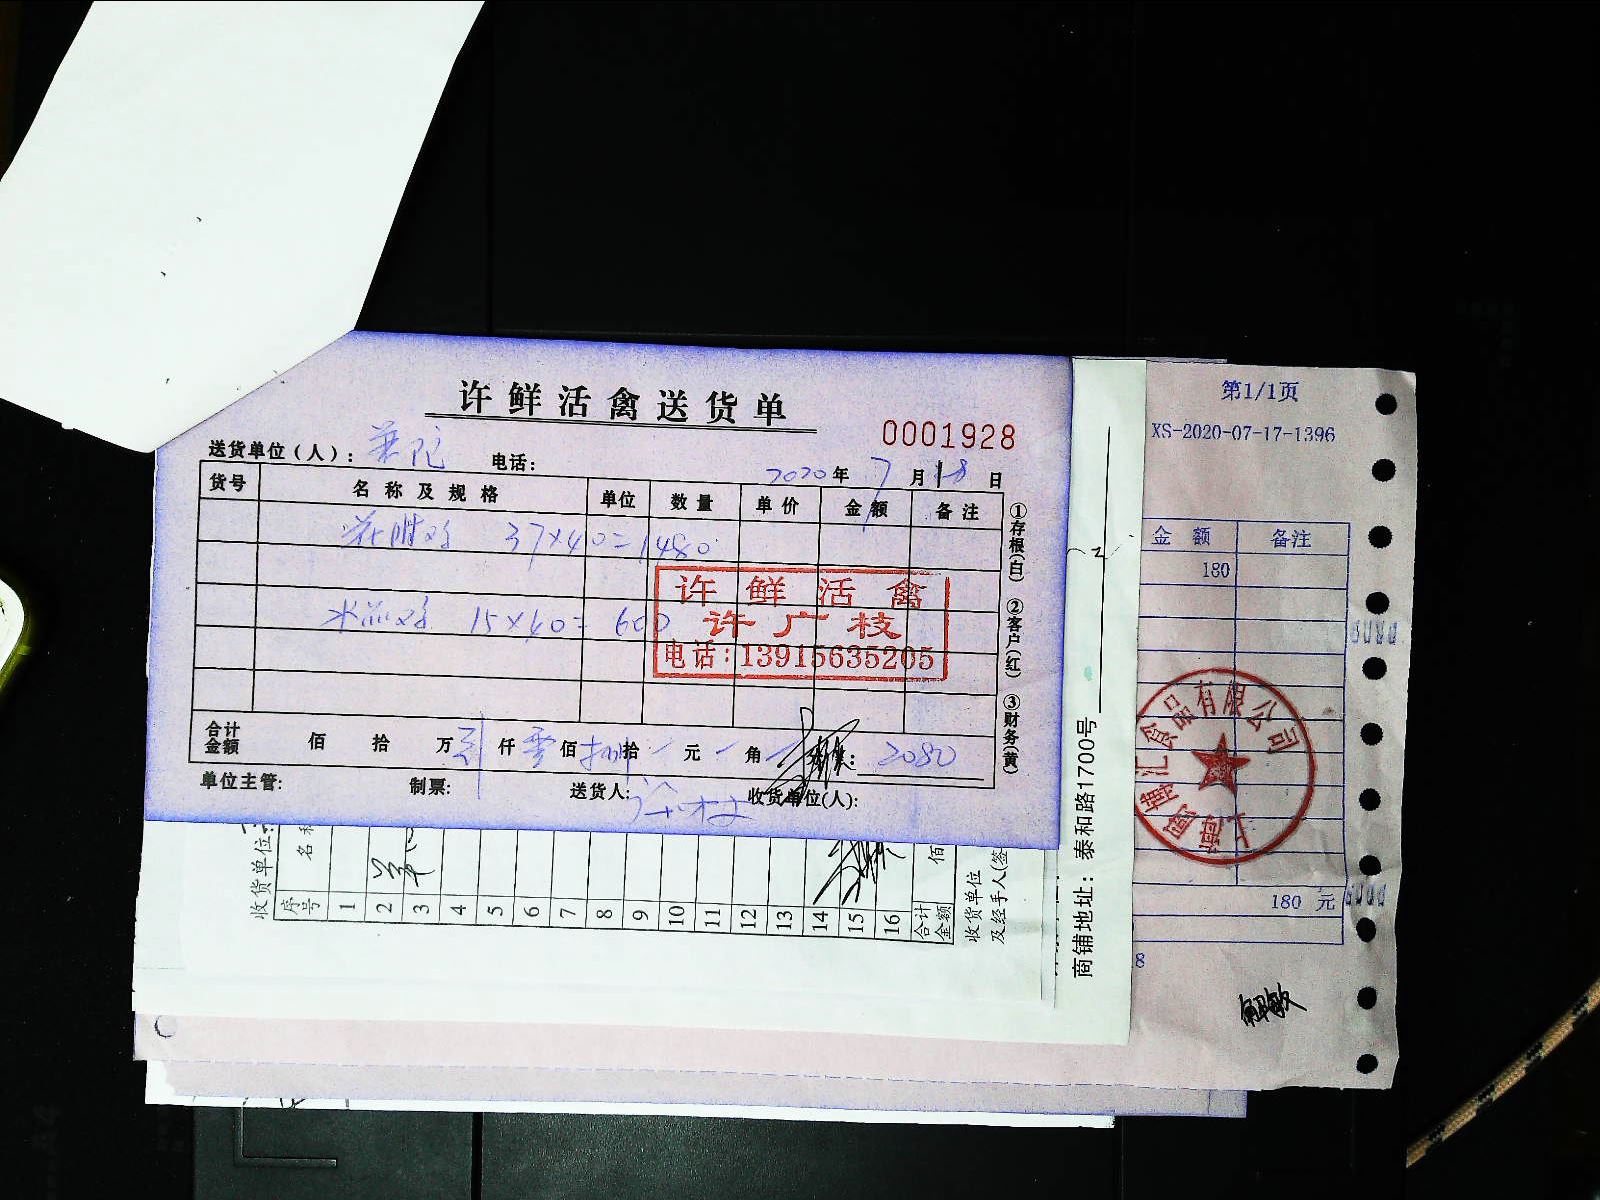 许鲜活禽送货单
0001928
送货单位（人）：普陀 电话：
2020年7月18日
货号 名称及规格 单位 数量 单价 金额 备注
37×40=1480
15×40=600
许鲜活禽
许广枝
电话：13915635205
合计金额 佰 拾 万 仟零佰捌拾 元 角 2080
单位主管： 制票： 送货人： 收货单位(人)：
①存根(白) ②客户(红) ③财务(黄)
收货单位：
序号 1 2 3 4 5 6 7 8 9 10 11 12 13 14 15 16 合计金额
佰
收货单位
及经手人(签
商铺地址：泰和路1700号
第1/1页
XS-2020-07-17-1396
金额 备注
180
食品有限公司
180 元
8